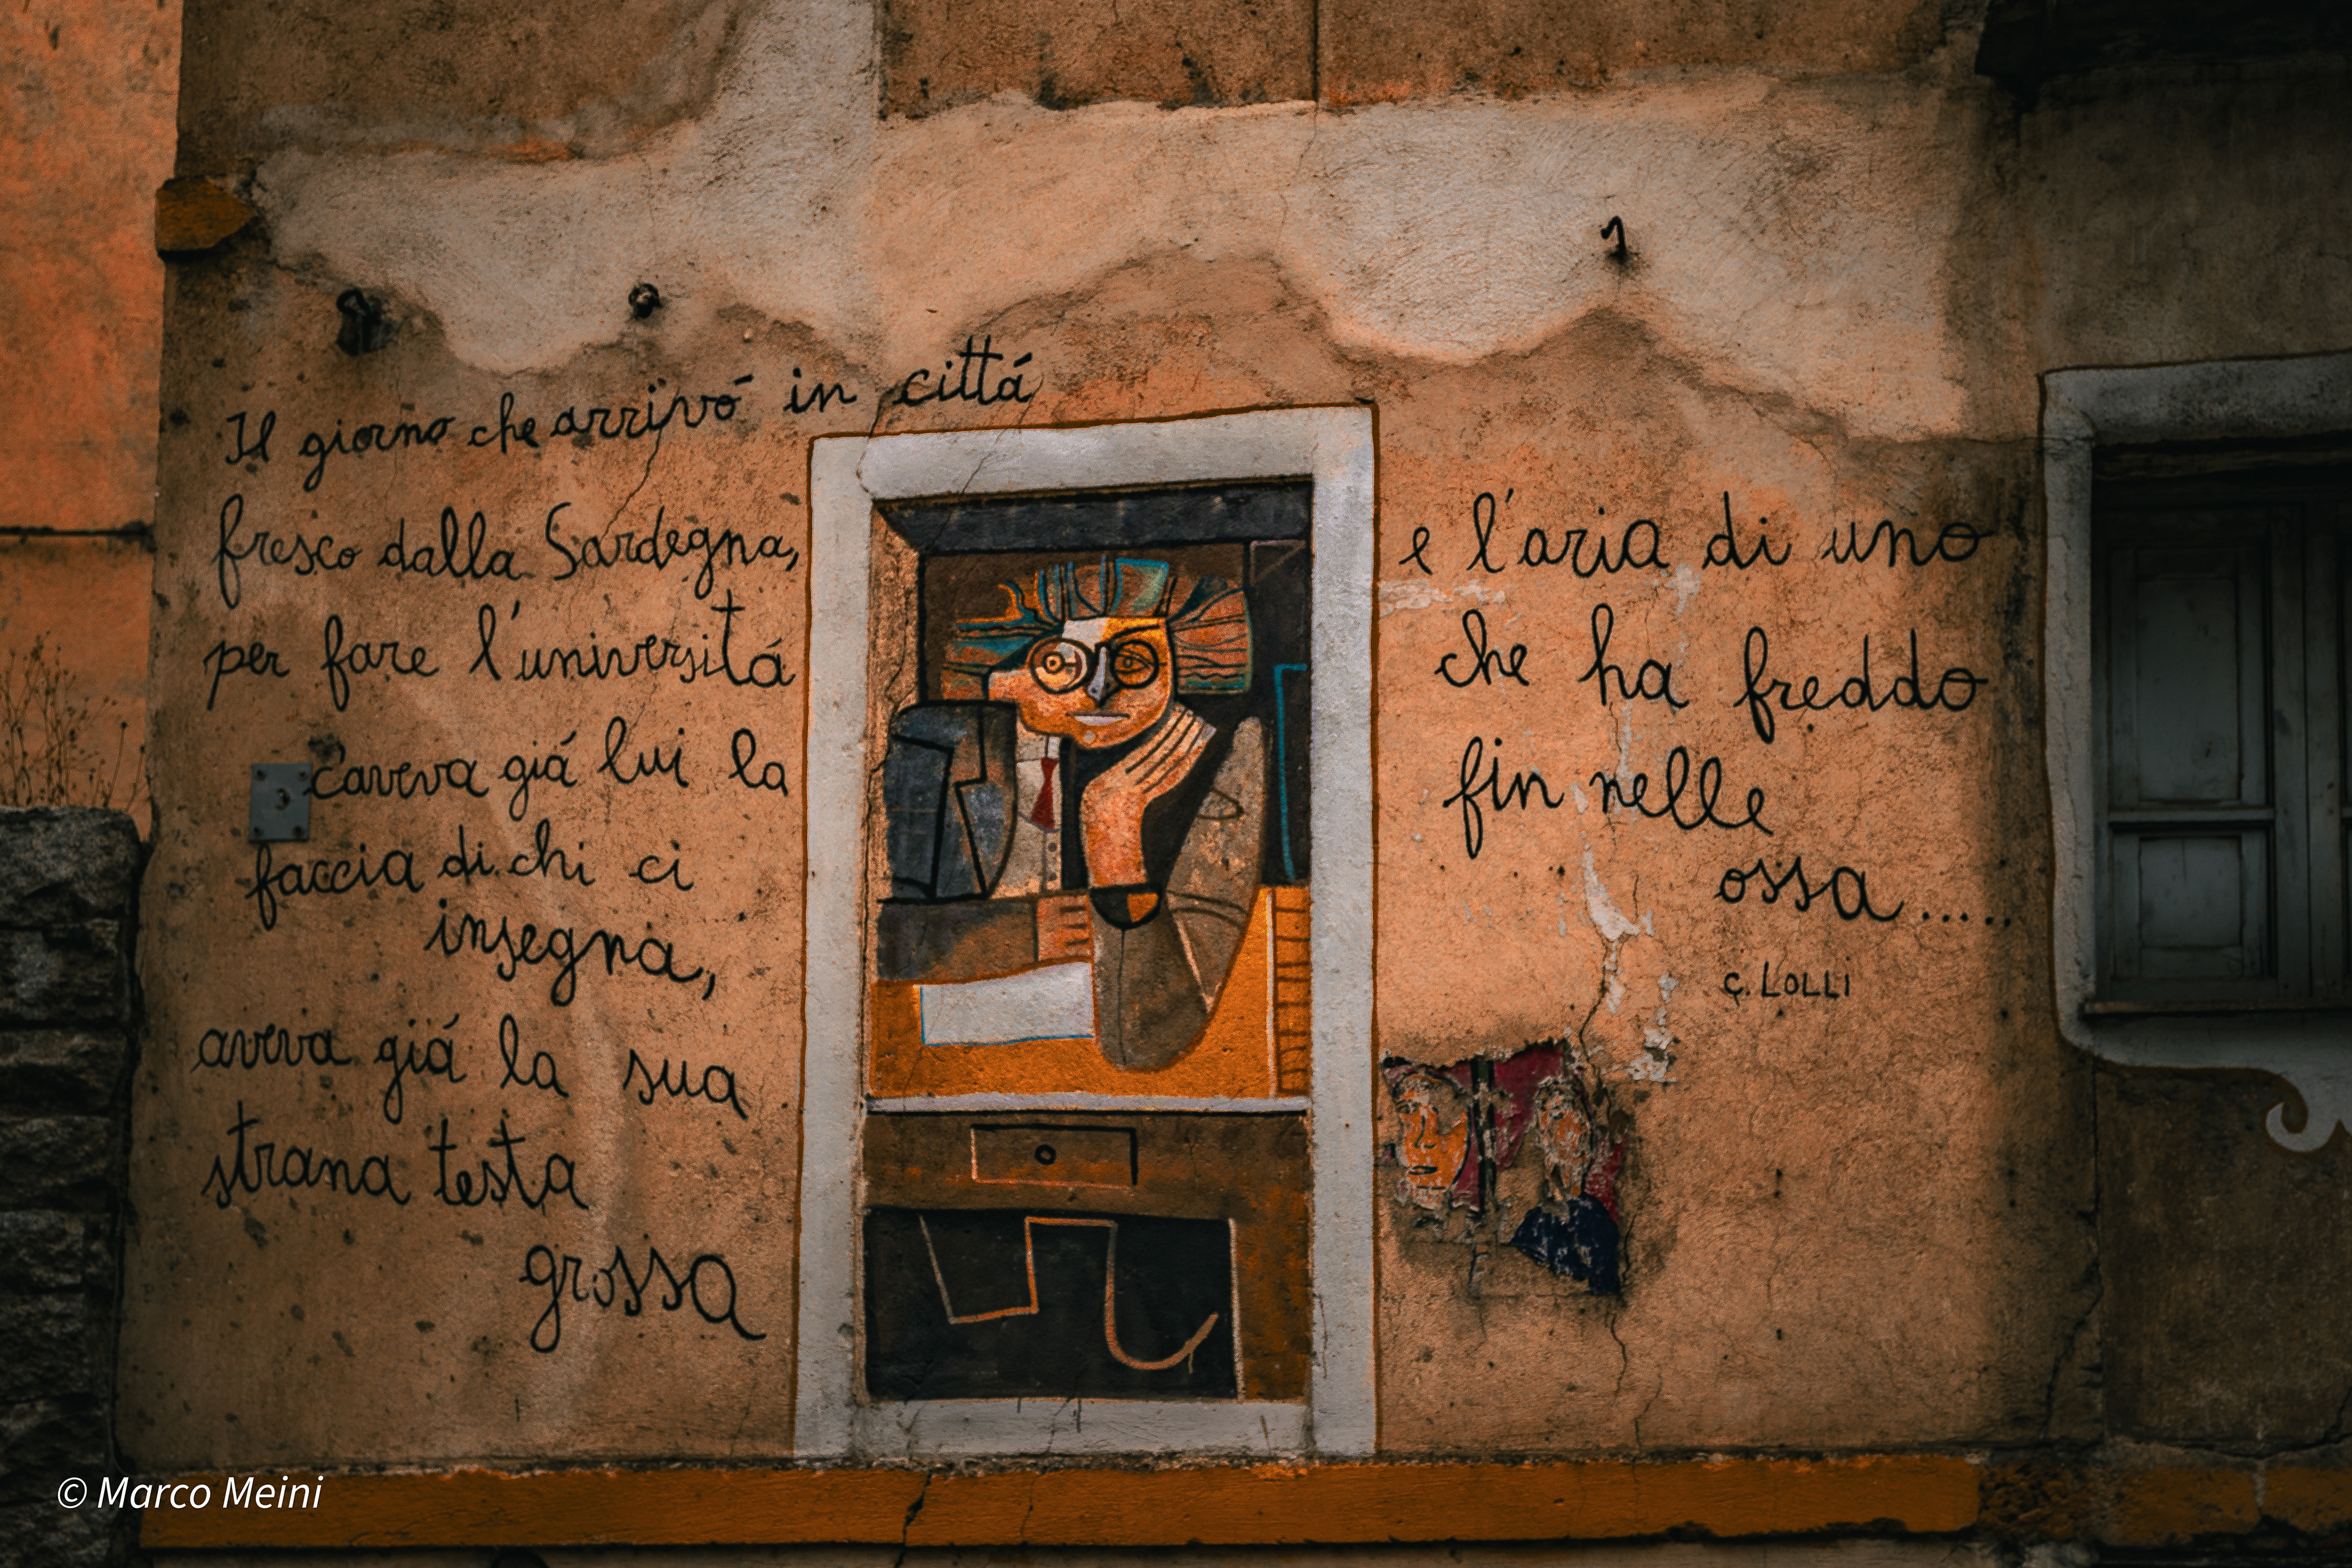 Il giorno che arrivó in cittá
fresco dalla Sardegna,
per fare l'universitá
c'aveva giá lui la
faccia di chi ci
insegna,
aveva giá la sua
strana testa
grossa
e l'aria di uno
che ha freddo
fin nelle
ossa.....
C. LOLLI
3
© Marco Meini